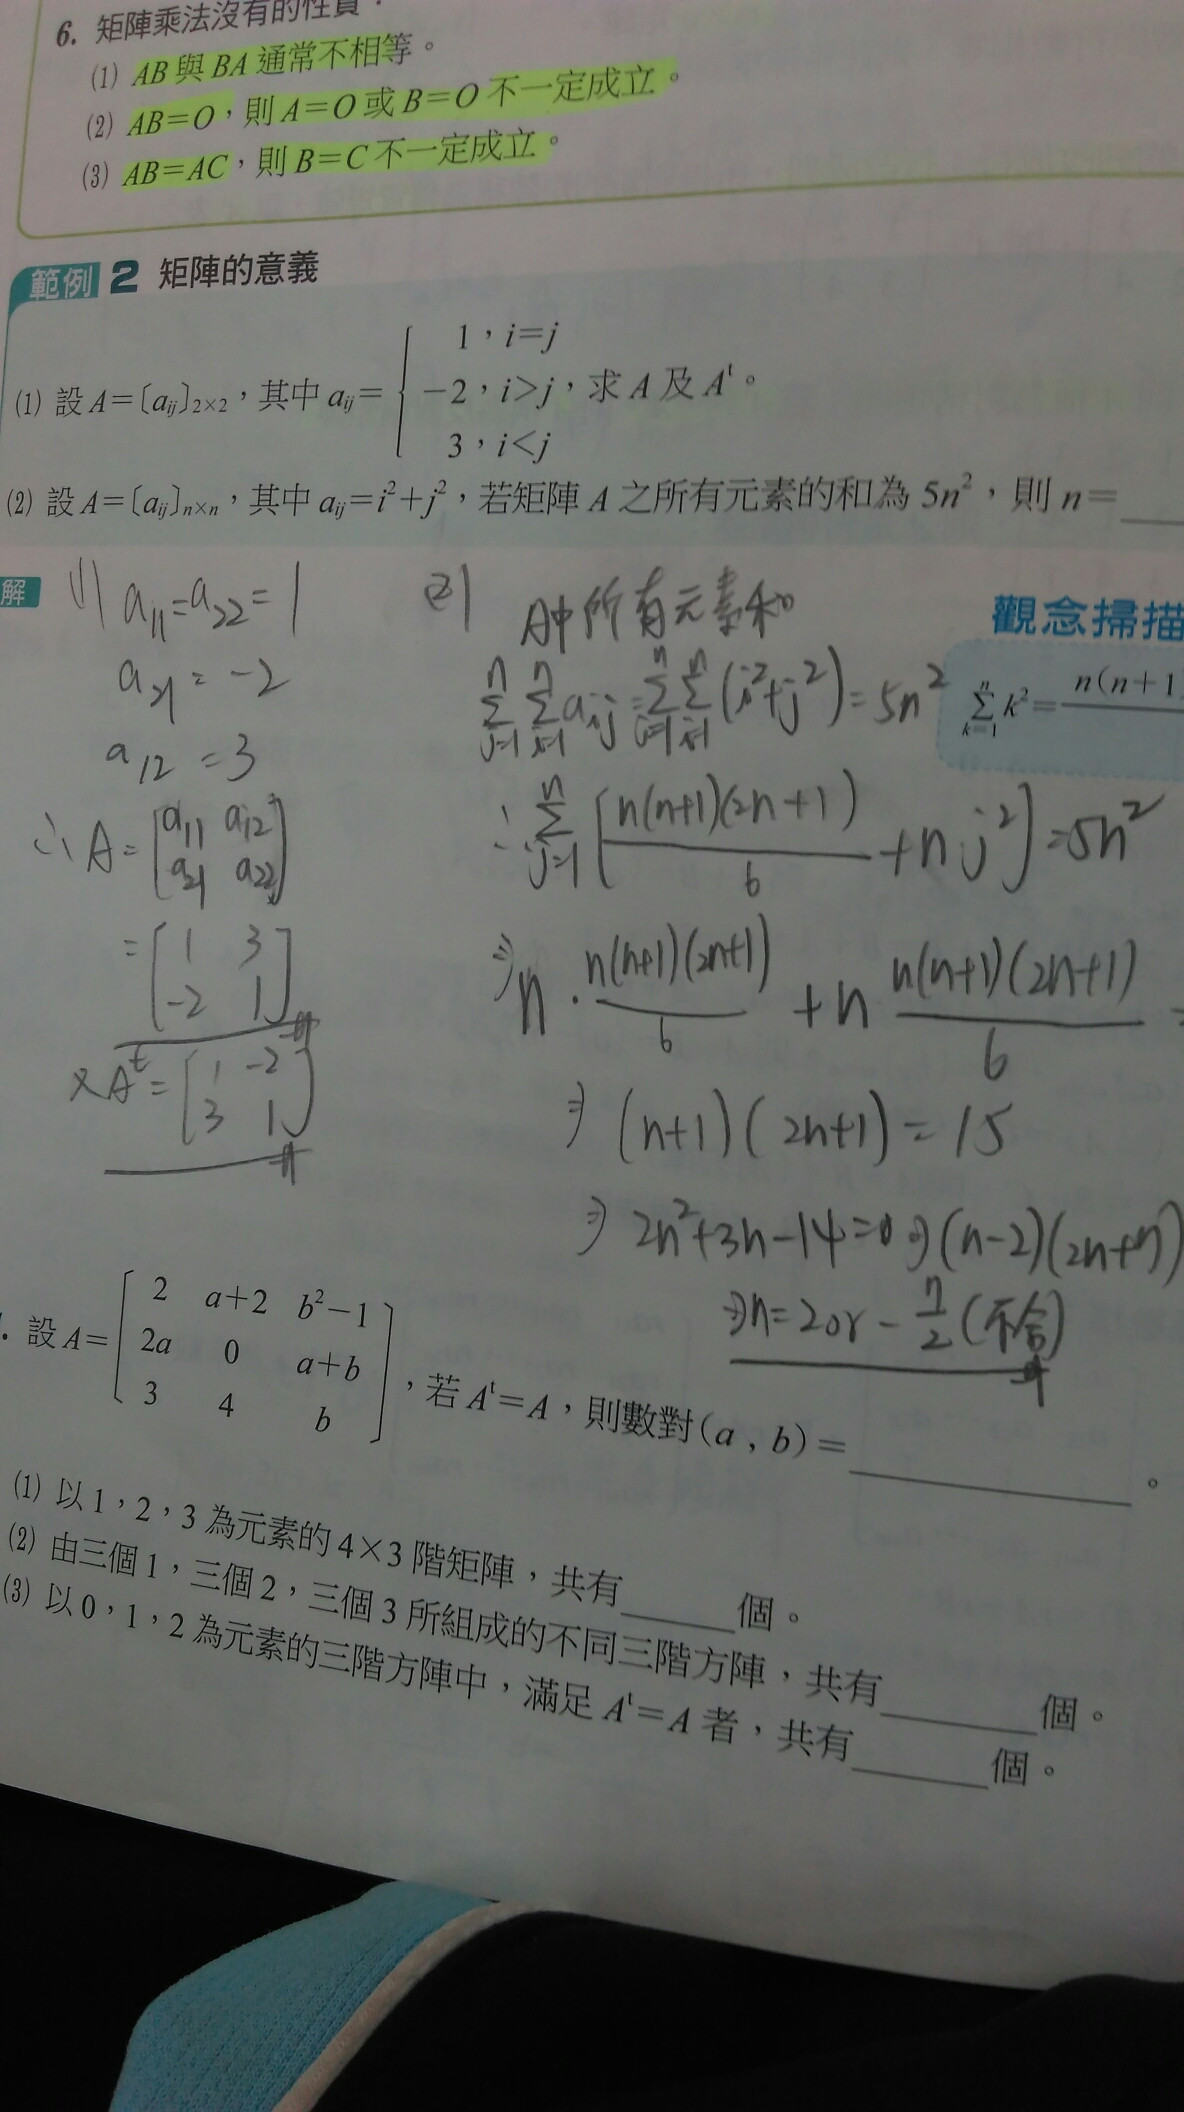 6. 矩陣乘法沒有的性質：
(1) AB 與 BA 通常不相等。
(2) AB=O，則 A=O 或 B=O 不一定成立。
(3) AB=AC，則 B=C 不一定成立。
範例 2 矩陣的意義
1，i=j
(1) 設 A=〔aij〕2×2，其中 aij= { −2，i>j，求 A 及 Aᵗ。
3，i<j
(2) 設 A=〔aij〕n×n，其中 aij=i²+j²，若矩陣 A 之所有元素的和為 5n²，則 n=
解
(1) a11=a22=1
a21=-2
a12=3
∴A=[a11 a12
a21 a22]
=[1 3
-2 1]
Aᵗ=[1 -2
3 1]
(2) A中所有元素和
n∑j=1 n∑i=1 aij = n∑j=1 n∑i=1 (i²+j²)=5n²
∴ n∑j=1 [n(n+1)(2n+1)/6 + n j²]=5n²
⇒ n·n(n+1)(2n+1)/6 + n n(n+1)(2n+1)/6 =
⇒ (n+1)(2n+1)=15
⇒ 2n²+3n-14=0 ⇒ (n-2)(2n+7)
⇒ n=2 or -7/2 (不合)
觀念掃描
n∑k=1 k²= n(n+1)
. 設 A= [2 a+2 b²−1
2a 0 a+b
3 4 b]，若 Aᵗ=A，則數對(a , b)= 。
(1) 以 1，2，3 為元素的 4×3 階矩陣，共有 個。
(2) 由三個 1，三個 2，三個 3 所組成的不同三階方陣，共有 個。
(3) 以 0，1，2 為元素的三階方陣中，滿足 Aᵗ=A 者，共有 個。